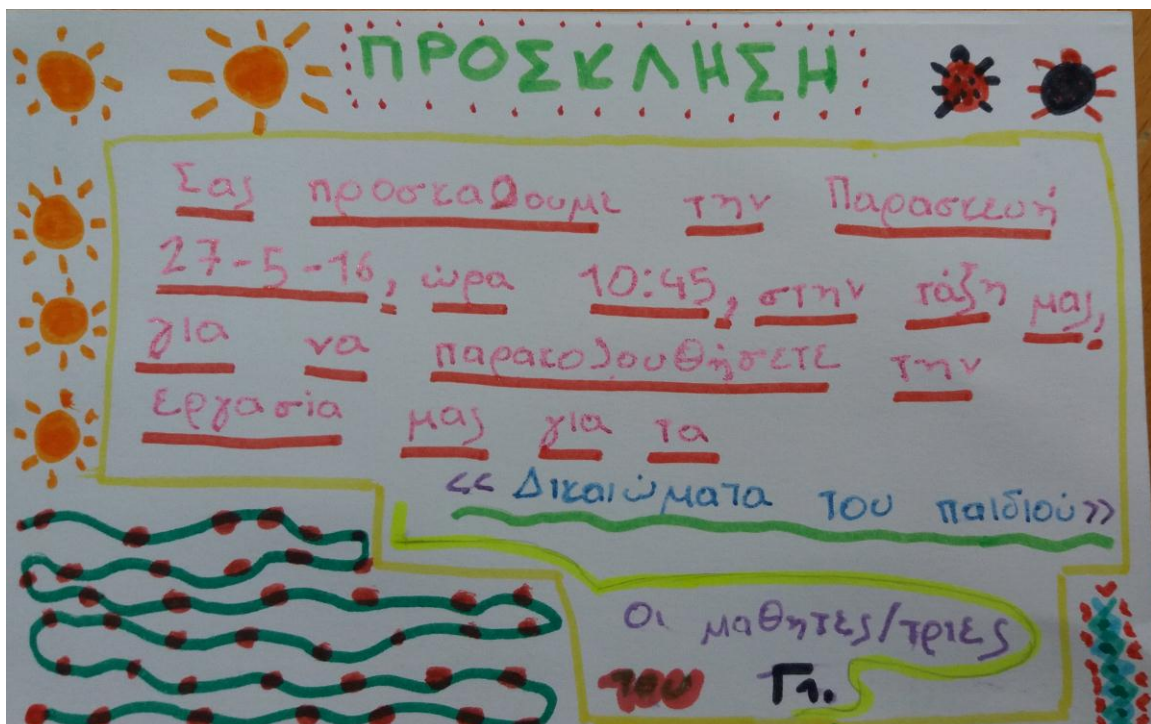 ΠΡΟΣΚΛΗΣΗ
Σας προσκαλουμε την Παρασκευή
27-5-16, ώρα 10:45, στην τάξη μας,
για να παρακολουθήσετε την
εργασία μας για τα
<< Δικαιώματα του παιδιού>>
Οι μαθητές/τριες
του Γ1.